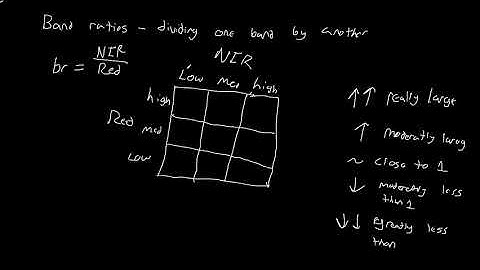 Band ratios - dividing one band by another
br = NIR / Red
NIR
Low med high
high
Red med
Low
↑↑ really large
↑ moderatly larg
~ close to 1
↓ moderately less
than 1
↓↓ greatly less
than